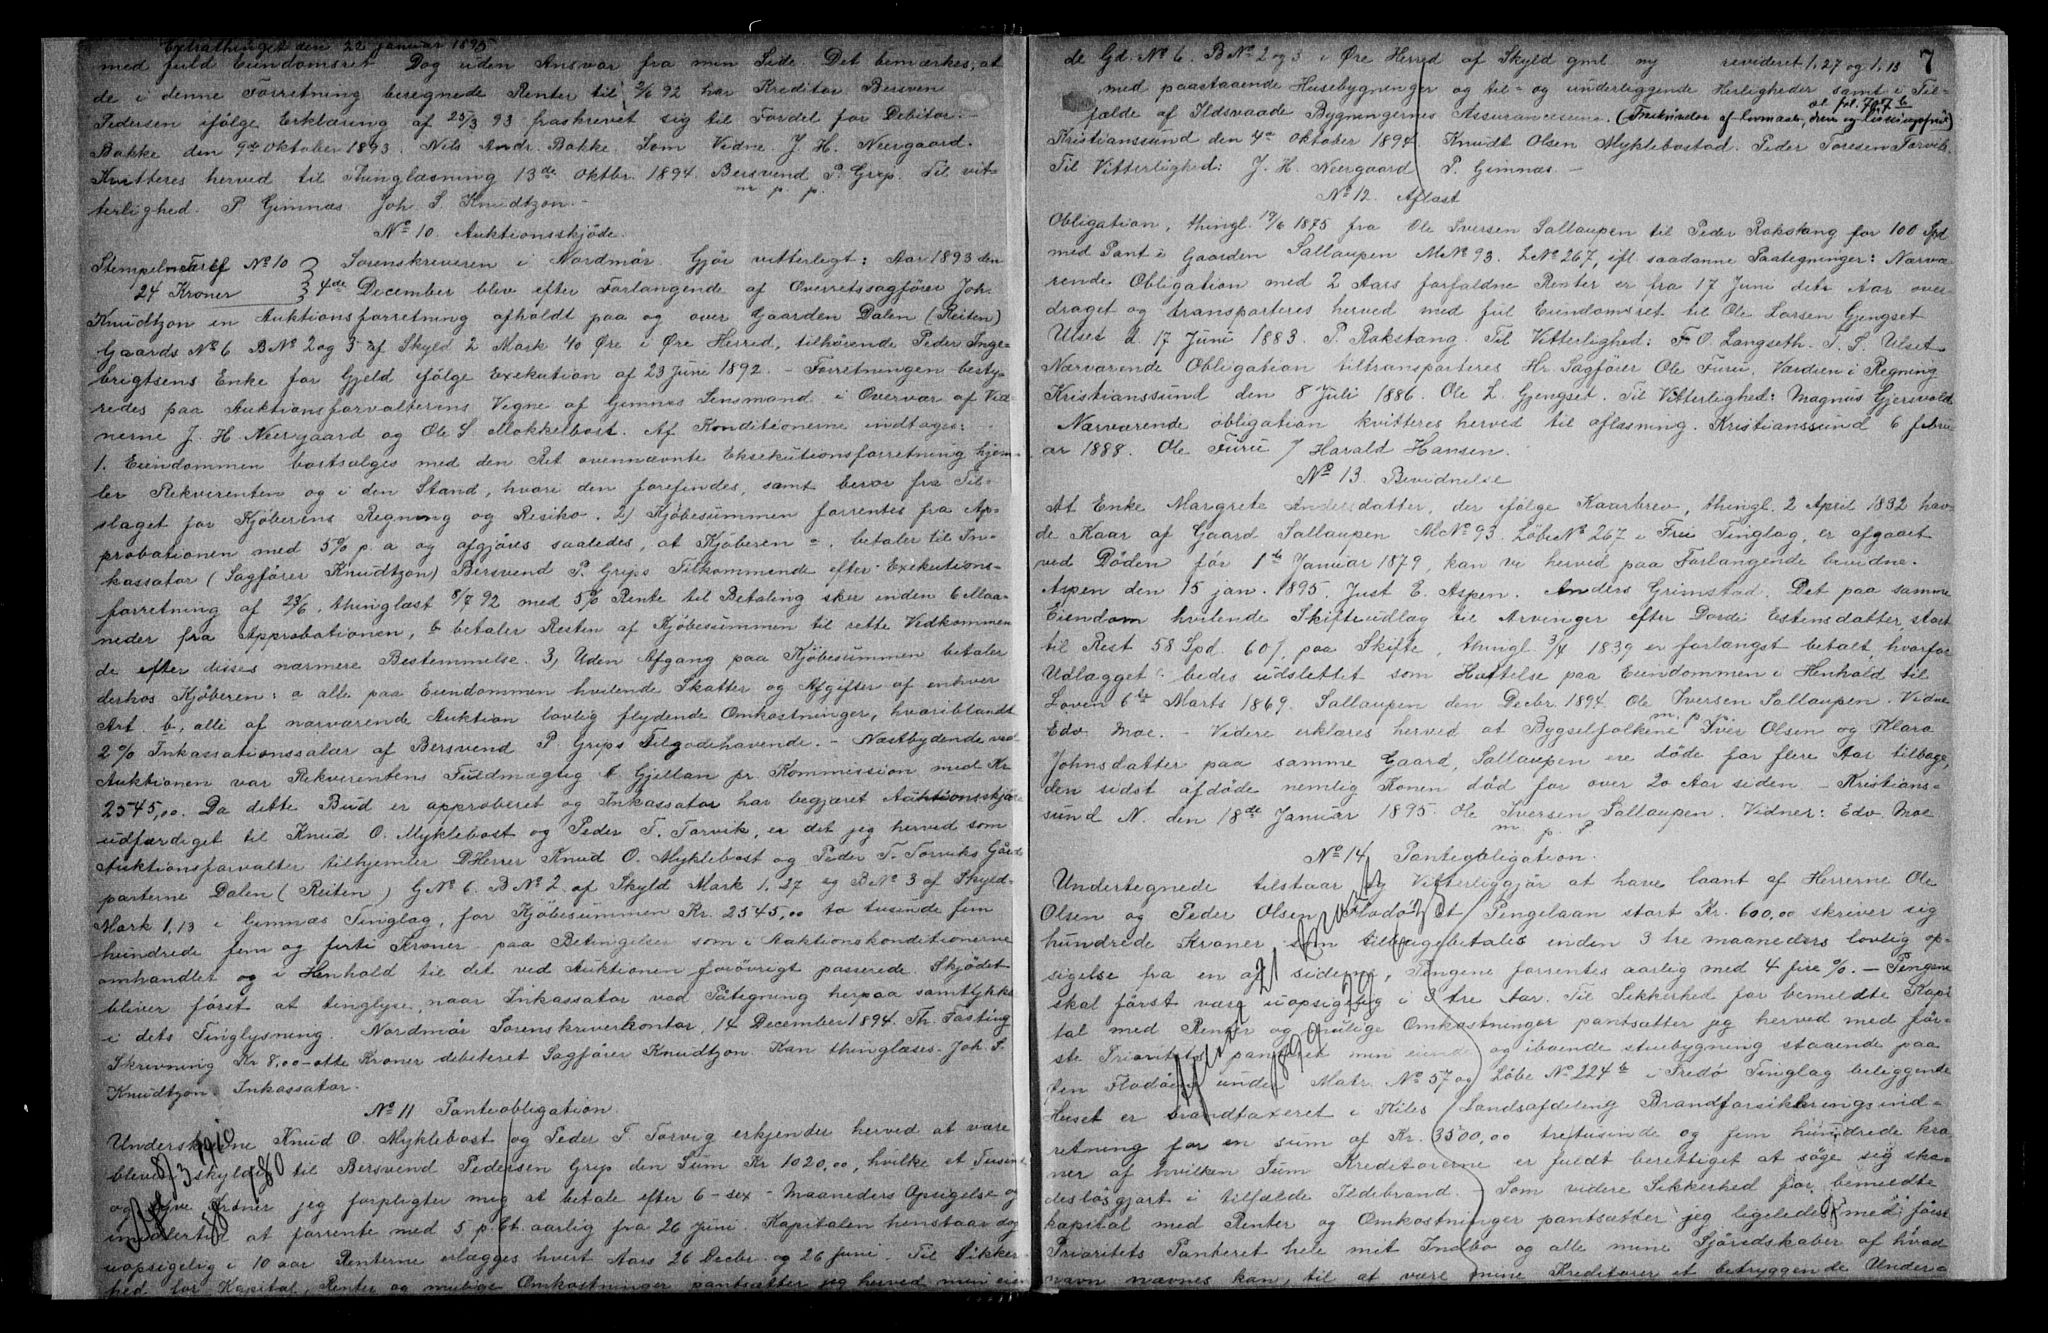 Extrathinget den 22 januar 1895
med fuld Eiendomsret Dog uden Ansvar fra min Side Det bemærkes, at
de i denne Forretning beregnede Renter til 2/6 92 har Kreditor Bersven
Pedersen ifølge Erklæring af 25/3 93 fraskrevet sig til Fordel for Debitor.-
Bakke den 9de Oktober 1893. Nils Andr. Bakke. Som Vidne. J. H. Neergaard.
Kvitteres herved til Thinglæsning 13de Oktbr. 1894. Bersvend P. Grip. Til vit-
m p. p.
terlighed. P. Gimnæs. Joh. S. Knudtzon.-
No 10. Auktionsskjøde.
Stempelm Tarif No 10 Sorenskriveren i Nordmør Gjør vitterligt: Aar 1893 den
24 Kroner 4de December blev efter Forlangende af Overretssagfører Joh.
Knudtzon en Auktionsforretning afholdt paa og over Gaarden Dalen (Reiten)
Gaards No 6 B No 2 og 3 af Skyld 2 Mark 40 Øre i Øre Herred, tilhørende Peder Inge-
brigtsens Enke for Gjeld ifølge Exekution af 23 Juni 1892. - Forretningen besty-
redes paa Auktionsforvalterens Vegne af Gimnes Lensmand i Overvær af Vid-
nerne J. H. Neergaard og Ole S. Mokkelbost. Af Konditionerne indtages:
1. Eiendommen bortsælges med den Ret ovennævnte Eksekutionsforretning hjem-
ler Rekvirenten og i den Stand, hvori den forefindes, samt beror fra Til-
slaget for Kjøberens Regning og Risiko. 2) Kjøbesummen forrentes fra Ap-
probationen med 5% p. a og afgjøres saaledes, at Kjøberen a. betaler til In-
kassator (Sagfører Knudtzon) Bersvend P. Grips Tilkommende efter Exekutions-
forretning af 23/6, thinglæst 8/7 92 med 5% Rente til Betaling sker inden 6 Maa-
neder fra Approbationen, b betaler Resten af Kjøbesummen til rette Vedkommen
de efter disses nærmere Bestemmelse. 3, Uden Afgang paa Kjøbesummen betaler
derhos Kjøberen: a alle paa Eiendommen hvilende Skatter og Afgifter af enhver
Art. b, alle af nærværende Auktion lovlig flydende Omkostninger, hvoriblandt
2% Inkassationssalær af Bersvend P. Grips Tilgodehavende. - Næstbydende ved
Auktionen var Rekvirentens Fuldmægtig C. Gjellan pr Kommission med Kr.
2545,00. Da dette Bud er approberet og Inkassator har begjæret Auktionsskjøde
udfærdiget til Knud O. Myklebost og Peder T. Torvik, er det jeg herved som
Auktionsforvalter tilhjemler DHerrer Knud O. Myklebost og Peder T. Torviks Gårds
parterne Dalen (Reiten) G No 6. B No 2 af Skyld Mark 1,27 og B No 3 af Skyld-
Mark 1,13 i Gimnæs Tinglag, for Kjøbesummen Kr. 2545,00 to tusinde fem
hundrede fem og firti Kroner paa Betingelser som i Auktionskonditionerne
omhandlet og i Henhold til det ved Auktionen forøvrigt passerede. Skjødet
bliver først at tinglyse, naar Inkassator ved Påtegning herpaa samtykke
i dets Tinglysning. Nordmør Sorenskriverkontor, 14 December 1894. Th. Fasting
Skrivning Kr 8,00-otte Kroner debiteret Sagfører Knudtzon. Kan thinglæses. Joh. S.
Knudtzon. Inkassator.-
No 11 Panteobligation.
Underskrevne Knud O. Myklebost og Peder T Torvig erkjender herved at være
bleven skyldig til Bersvend Pedersen Grip den Sum Kr 1020,00, hvilke et Tusin
og tyve Kroner jeg forpligter mig at betale efter 6-sex-Maaneders Opsigelse og
imidlertid at forrente med 5 p. Ct. aarlig fra 26 Juni. Kapitalen henstaar dog
uopsigelig i 10 aar Renterne erlægges hvert Aars 26 Decbr. og 26 Juni. Til Sikker-
hed for Kapital, Renter og mulige Omkostninger pantsætter jeg herved min eien
8/3 1910
180
7
de Gd. No 6. B No 2 og 3 i Øre Herred af Skyld gml ny revideret 1,27 og 1,13
med paastaaende Husebygninger og til- og underliggende Herligheder samt i Til-
fælde af Ildsvaade Bygningernes Assurancesum.
Kristianssund den 4de Oktober 1894. Knudt Olsen Myklebostad. Peder Toresen Torvik
Til Vitterlighed: J. H. Neergaard P. Gimnæs.-
No 12. Aflæst
Obligation, thingl. 17/6 1875 fra Ole Iversen Sallaupen til Peder Rakstang for 100 Spd
med Pant i Gaarden Sallaupen M No 93. L No 267, ifl saadanne Paategninger: Nærvæ-
rende Obligation med 2 Aars forfaldne Renter er fra 17 Juni dette Aar over
draget og transporteres herved med ful Eiendomsret til Ole Larsen Gjengset
Ulset d. 17 Juni 1883. P. Rakstang. Til Vitterlighed: F. O. Langseth. T. S. Ulset
Nærværende Obligation tiltransporteres Hr. Sagfører Ole Furu. Værdien i Regning
Kristianssund den 8 Juli 1886. Ole L. Gjengset. Til Vitterlighed: Magnus Gjersvold
Nærværende obligation kvitteres herved til aflæsning. Kristianssund 6 febru
ar 1888. Ole Furu / Harald Hansen.
No 13. Bevidnelse
At Enke Margrete Andersdatter, der ifølge Kaarbrev, thingl. 2 April 1832 hav-
de Kaar af Gaard Sallaupen M No 93. Løbe No 267 i Frei Tinglag, er afgaaet
ved Døden før 1te Januar 1879, kan vi herved paa Forlangende bevidne.
Aspen den 15 jan. 1895. Just E. Aspen. Anders Grimstad. Det paa samme
Eiendom hvilende Skifteudlæg til Arvinger efter Dordi Estensdatter, stort
til Rest 58 Spd. 60 /, paa Skifte, thingl 3/4 1839 er forlængst betalt, hvorfor
Udlægget bedes udslettet som Heftelse paa Eiendommen i Henhold til
Loven 6te Marts 1869. Sallaupen den Decbr. 1894. Ole Iversen Sallaupen. Vidne
m p
Edv Moe. - Videre erklæres herved at Bygselfolkene Iver Olsen og Klara
Johnsdatter paa samme Gaard, Sallaupen ere døde for flere Aar tilbage,
den sidst afdøde nemlig Konen død for over 20 Aar siden. - Kristians-
sund N. den 18de Januar 1895. Ole Iversen Sallaupen. Vidner: Edv Moe
m. p. P
No 14. Panteobligation.
Undertegnede tilstaar og Vitterliggjør at have laant af Herrerne Ole
Olsen og Peder Olsen Flodø et Pengelaan stort Kr. 600,00 skriver sig
hundrede Kroner som tilbagebetales inden 3 tre maaneders lovlig op-
sigelse fra en af siderne, Pengene forrentes aarlig med 4 fire %. - Pengene
skal først være uopsigelig i 3 tre Aar. Til Sikkerhed for bemeldte Kapi
tal med Renter og mulige Omkostninger pantsætter jeg herved med før-
ste Prioritets panteret min eiende og iboende stuebygning staaende paa
under Matr. No 57 og Løbe No 224b i Fredø Tinglag beliggende
Huset er brandtaxeret i Kiles Landsafdeling Brandforsikkringsind-
retning for en sum af Kr. 3500,00 tretusinde og fem hundrede kro
ner af hvilken Sum Kreditorerne er fuldt berettiget at søge sig ska-
desløsgjort i tilfælde Ildebrand. - Som videre Sikkerhed for bemeldte
kapital med Renter og Omkostninger pantsætter jeg ligeledes med først
Prioritets Panteret hele mit Indbo og alle mine Sjøredskaber af hvad
navn nævnes kan, til at være mine Kreditorer et betryggende Under-
1899